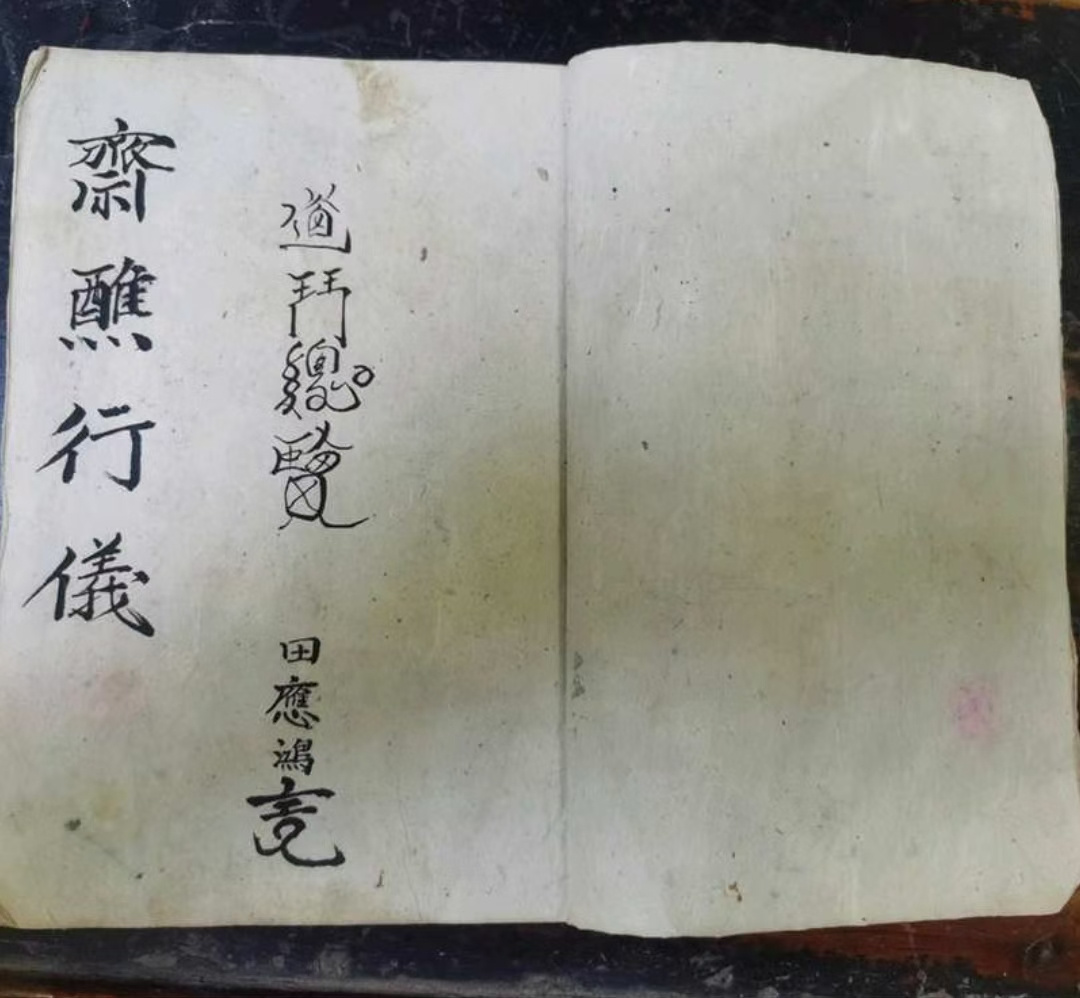 道鬥總覽 田應鴻
齋醮行儀